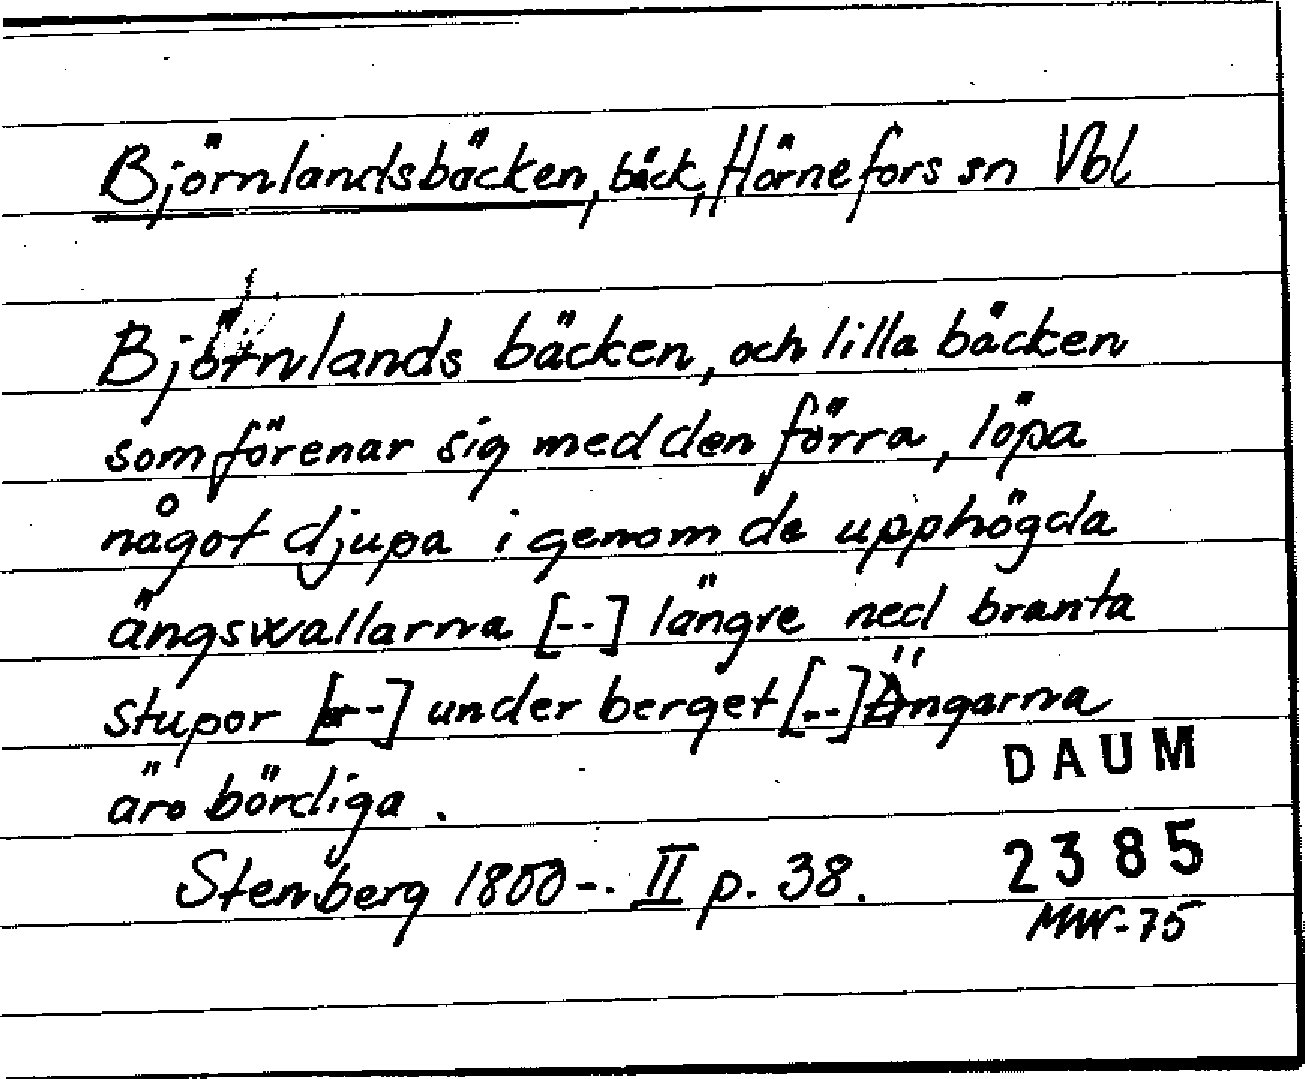 Björnlandsbäcken, bäck, Hörnefors sn Vbl
Björnlands bäcken, och lilla bäcken
som förenar sig med den förra, löpa
något djupa igenom de upphögda
ängswallarna [--] längre ned branta
stupor [--] under berget [--] Ängarna
äro bördiga.
DAUM
Stenberg 1800-. II p. 38.
2385
MW-75